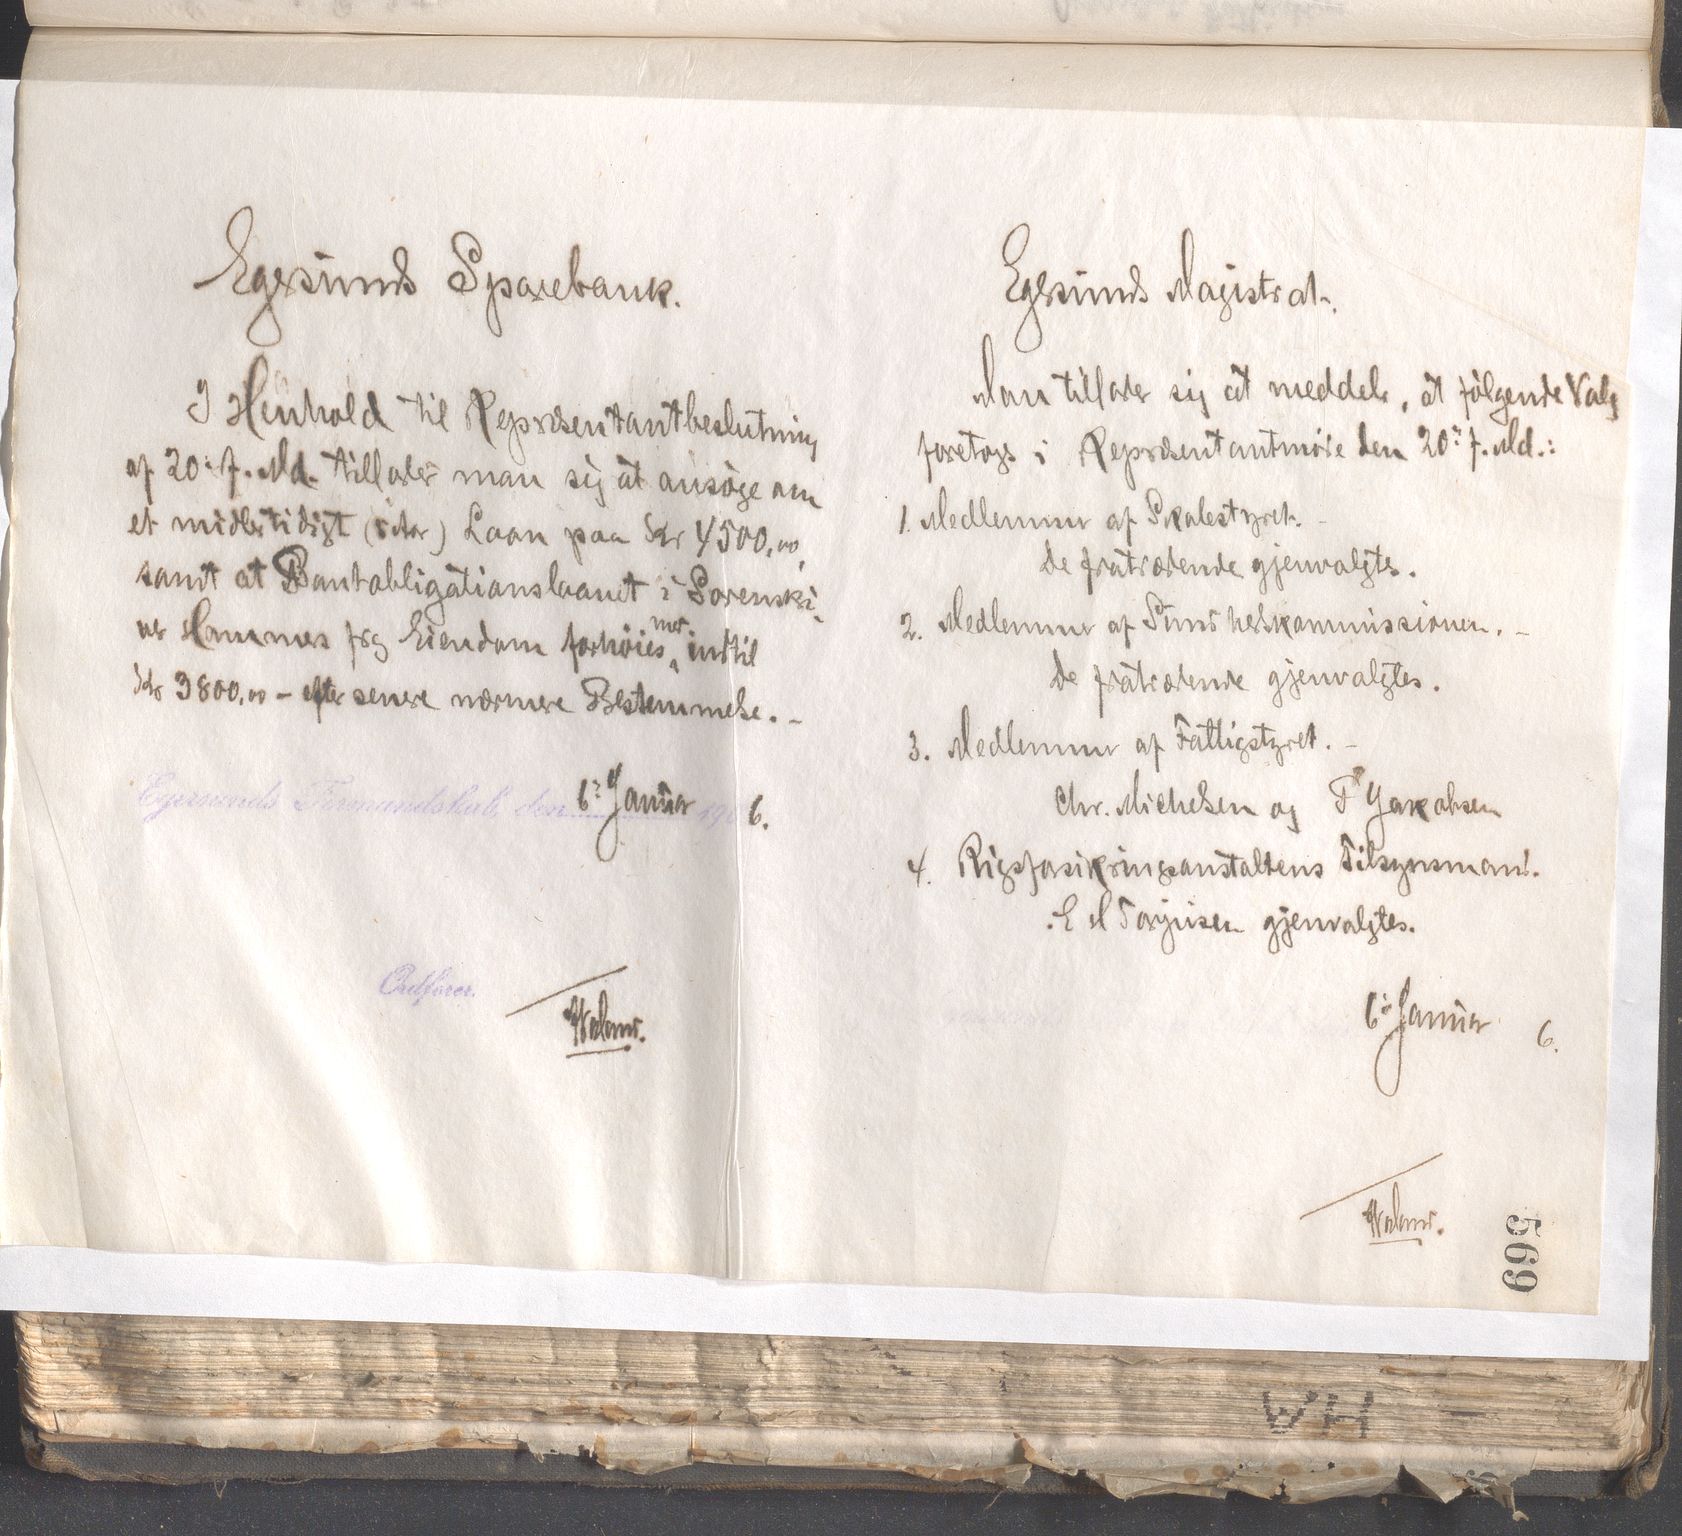 Egersunds Sparebank.
I Henhold til Repræsentantbeslutning
af 20. f. Md. tillader man sig at ansøge om
et midlertidigt (i Aar) Laan paa Kr 4500,00,
samt at Pantobligationslaanet i Sorenskri-
ver Hammers frg Eiendom forhøies indtil
Kr 3800,00 – efter senere nærmere Bestemmelse. –
Egersunds Formandskab, den 6: Januar 1906.
Ordfører.
Egersunds Magistrat.
Man tillader sig at meddele, at følgende Valg
foretogs i Repræsentantmøde den 20: f. Md.:
1. Medlemmer af Skolestyret. –
De fratrædende gjenvalgtes.
2. Medlemmer af Sundhedskommissionen. –
De fratrædende gjenvalgtes.
3. Medlemmer af Fattigstyret. –
Chr. Michelsen og F Jakobsen
4. Rigsforsikringsanstaltens Tilsynsmand.
E M Torjusen gjenvalgtes.
6: Januar 6.
569